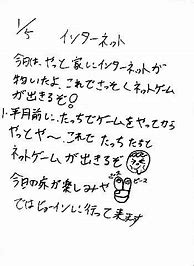 1/5
インターネット
今日は、やっと家にインターネットが
物いたよ、これでさっそくネットゲーム
が出きるぞ!
1.半月前に、たっちでゲームをやってから
やってや〜、これで たっち たちで
ネットゲームが出きるぞ
今日の夜が楽しみや
ピース ピース
ではヒーインしに行って来ます